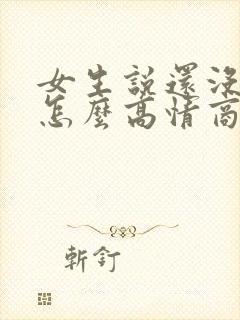 女生說還沒
怎麼高情商
斬釘